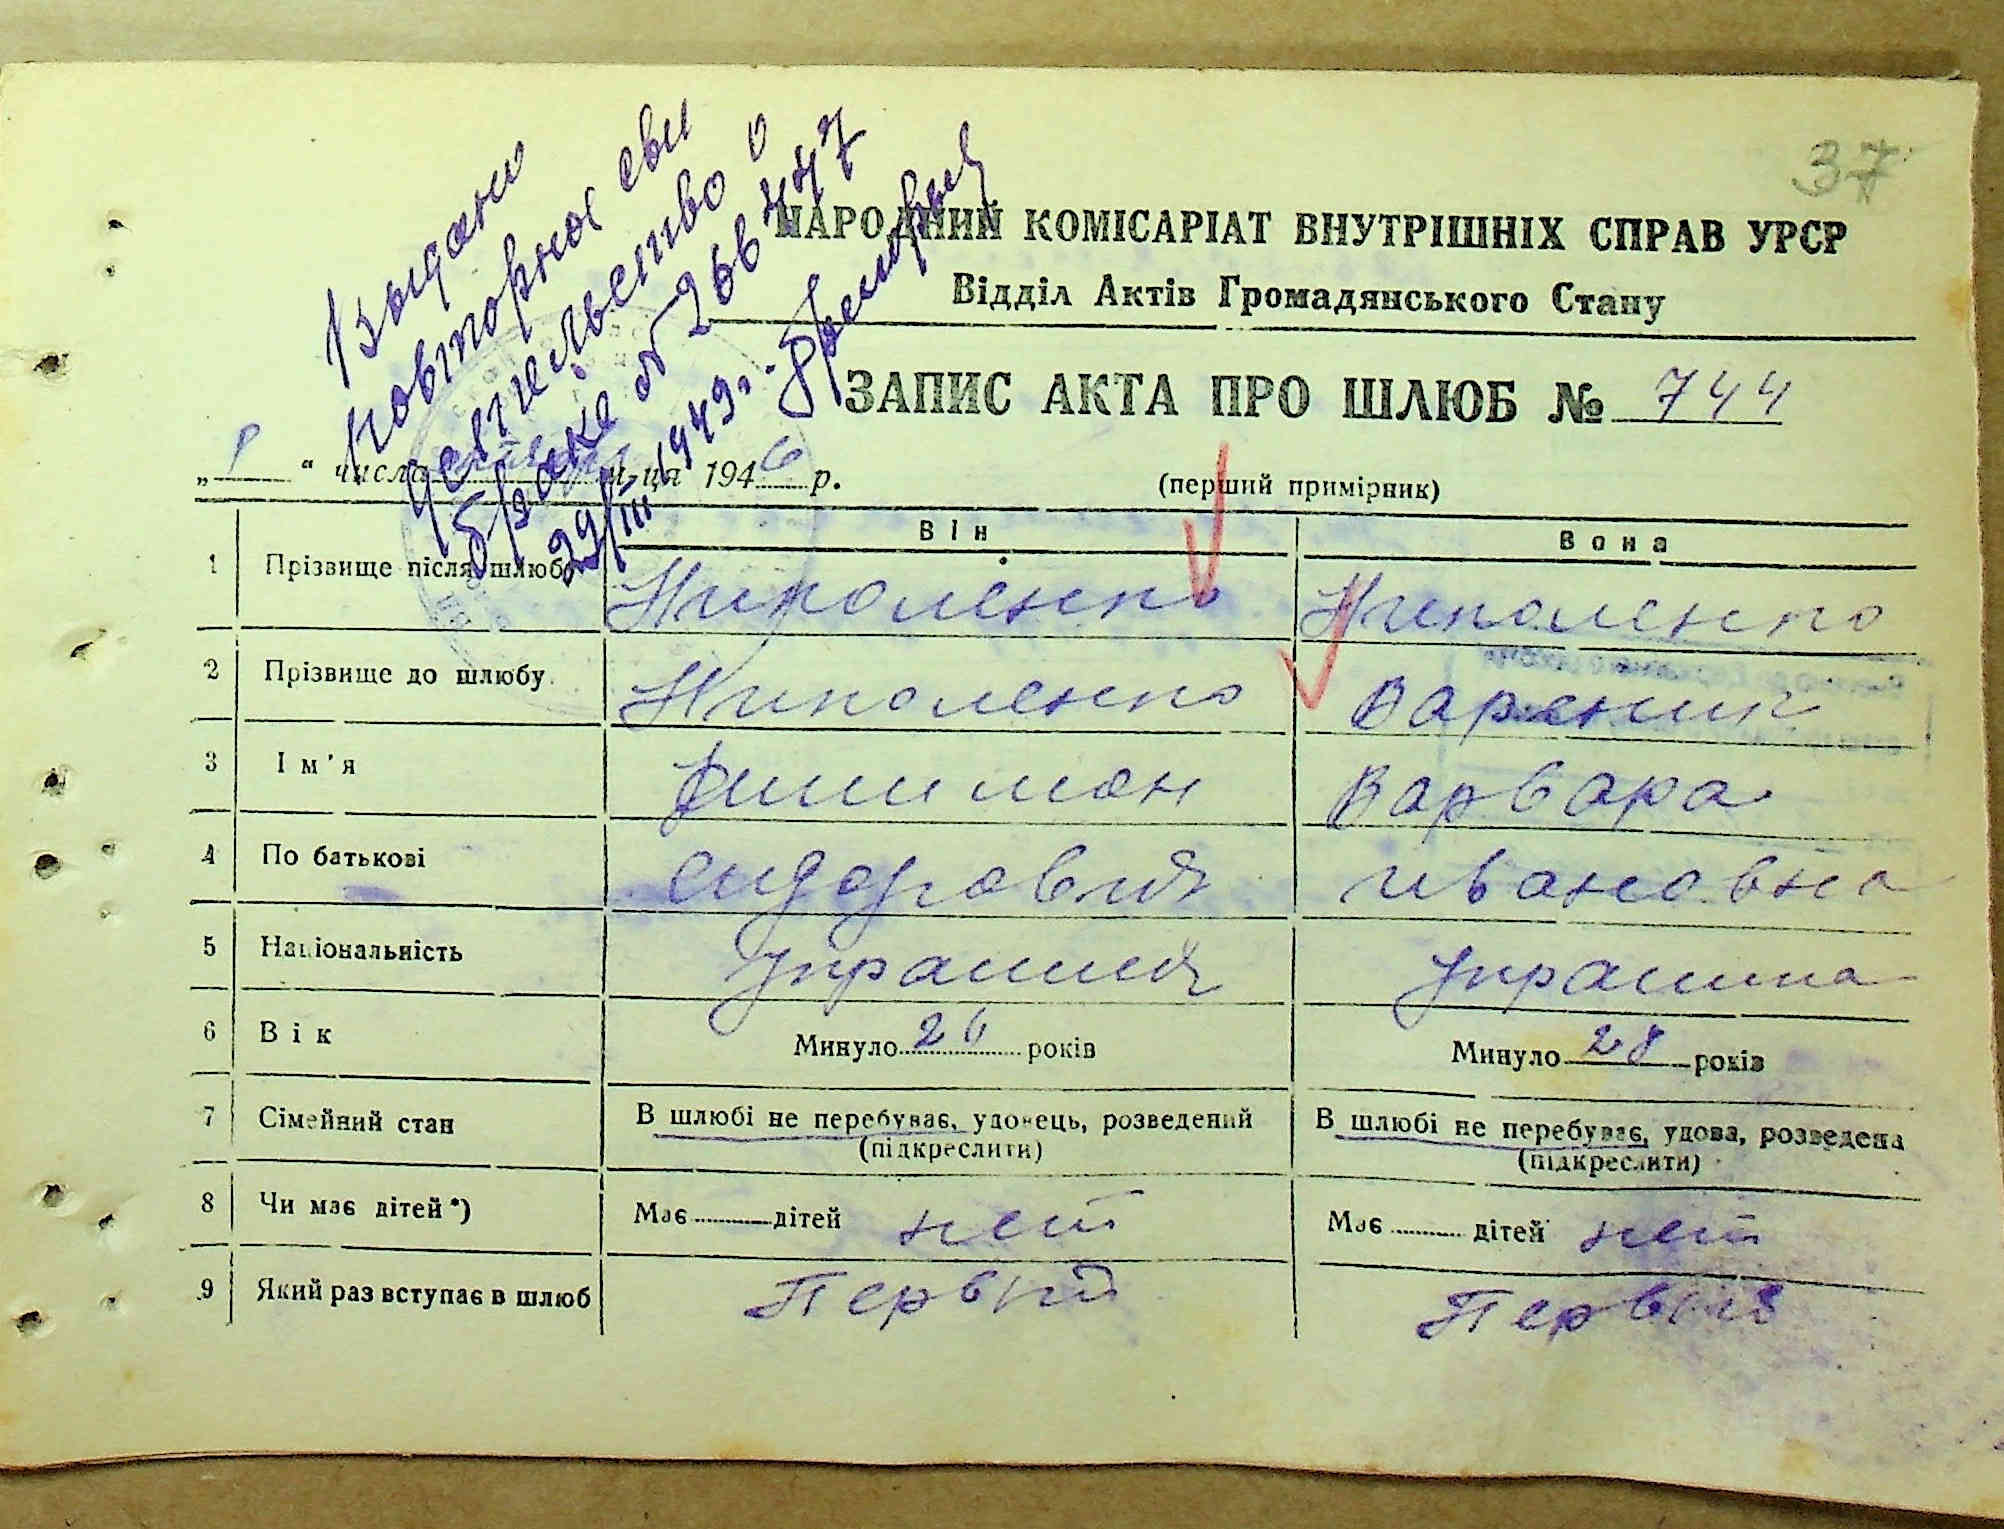 37
Выдано
повторное сви
детельство о
браке № 266447
29/III 1949г.
НАРОДНИЙ КОМІСАРІАТ ВНУТРІШНІХ СПРАВ УРСР
Відділ Актів Громадянського Стану
ЗАПИС АКТА ПРО ШЛЮБ № 744
„ “ числа м-ця 1946 р.
(перший примірник)
Він Вона
1 Прізвище після шлюбу Ниполенко Ниполенко
2 Прізвище до шлюбу Ниполенко Вареник
3 Ім'я Филимон Варвара
4 По батькові Сидорович Ивановна
5 Національність Украинец Украинка
6 Вік Минуло 26 років Минуло 28 років
7 Сімейний стан В шлюбі не перебуває, удовець, розведений В шлюбі не перебуває, удова, розведена
(підкреслити) (підкреслити)
8 Чи має дітей *) Має дітей нет Має дітей нет
9 Який раз вступає в шлюб Первый Первый